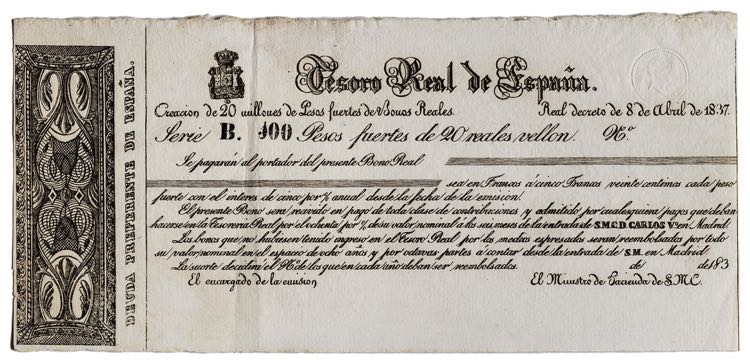 DEUDA PREFERENTE DE ESPAÑA.
Tesoro Real de España.
Creacion de 20 millones de Pesos fuertes de Bonos Reales. Real decreto de 8 de Abril de 1837.
Serie B. 100 Pesos fuertes de 20 reales vellon. Nº
Se pagarán al portador del presente Bono Real
sea en Francos á cinco Francos veinte centimos cada peso
fuerte con el interes de cinco por % anual desde la fecha de la emision.
El presente Bono será recivido en pago de toda clase de contribuciones y admitido por cualesquiera pagos que deban
hacerse en la Tesoreria Real por el ochenta por % de su valor nominal a los seis meses de la entrada de S.M.C.D. CARLOS Vº en Madrid.
Los bonos que no hubiesen tenido ingreso en el Tesoro Real por los medios espresados seran reembolsados por todo
su valor nominal en el espacio de ocho años y por octavas partes á contar desde la entrada de S.M. en Madrid.
La suerte decidira el Nº de los que en cada año deban ser reembolsados. de de 183
El encargado de la emision El Ministro de Hacienda de S.M.C.